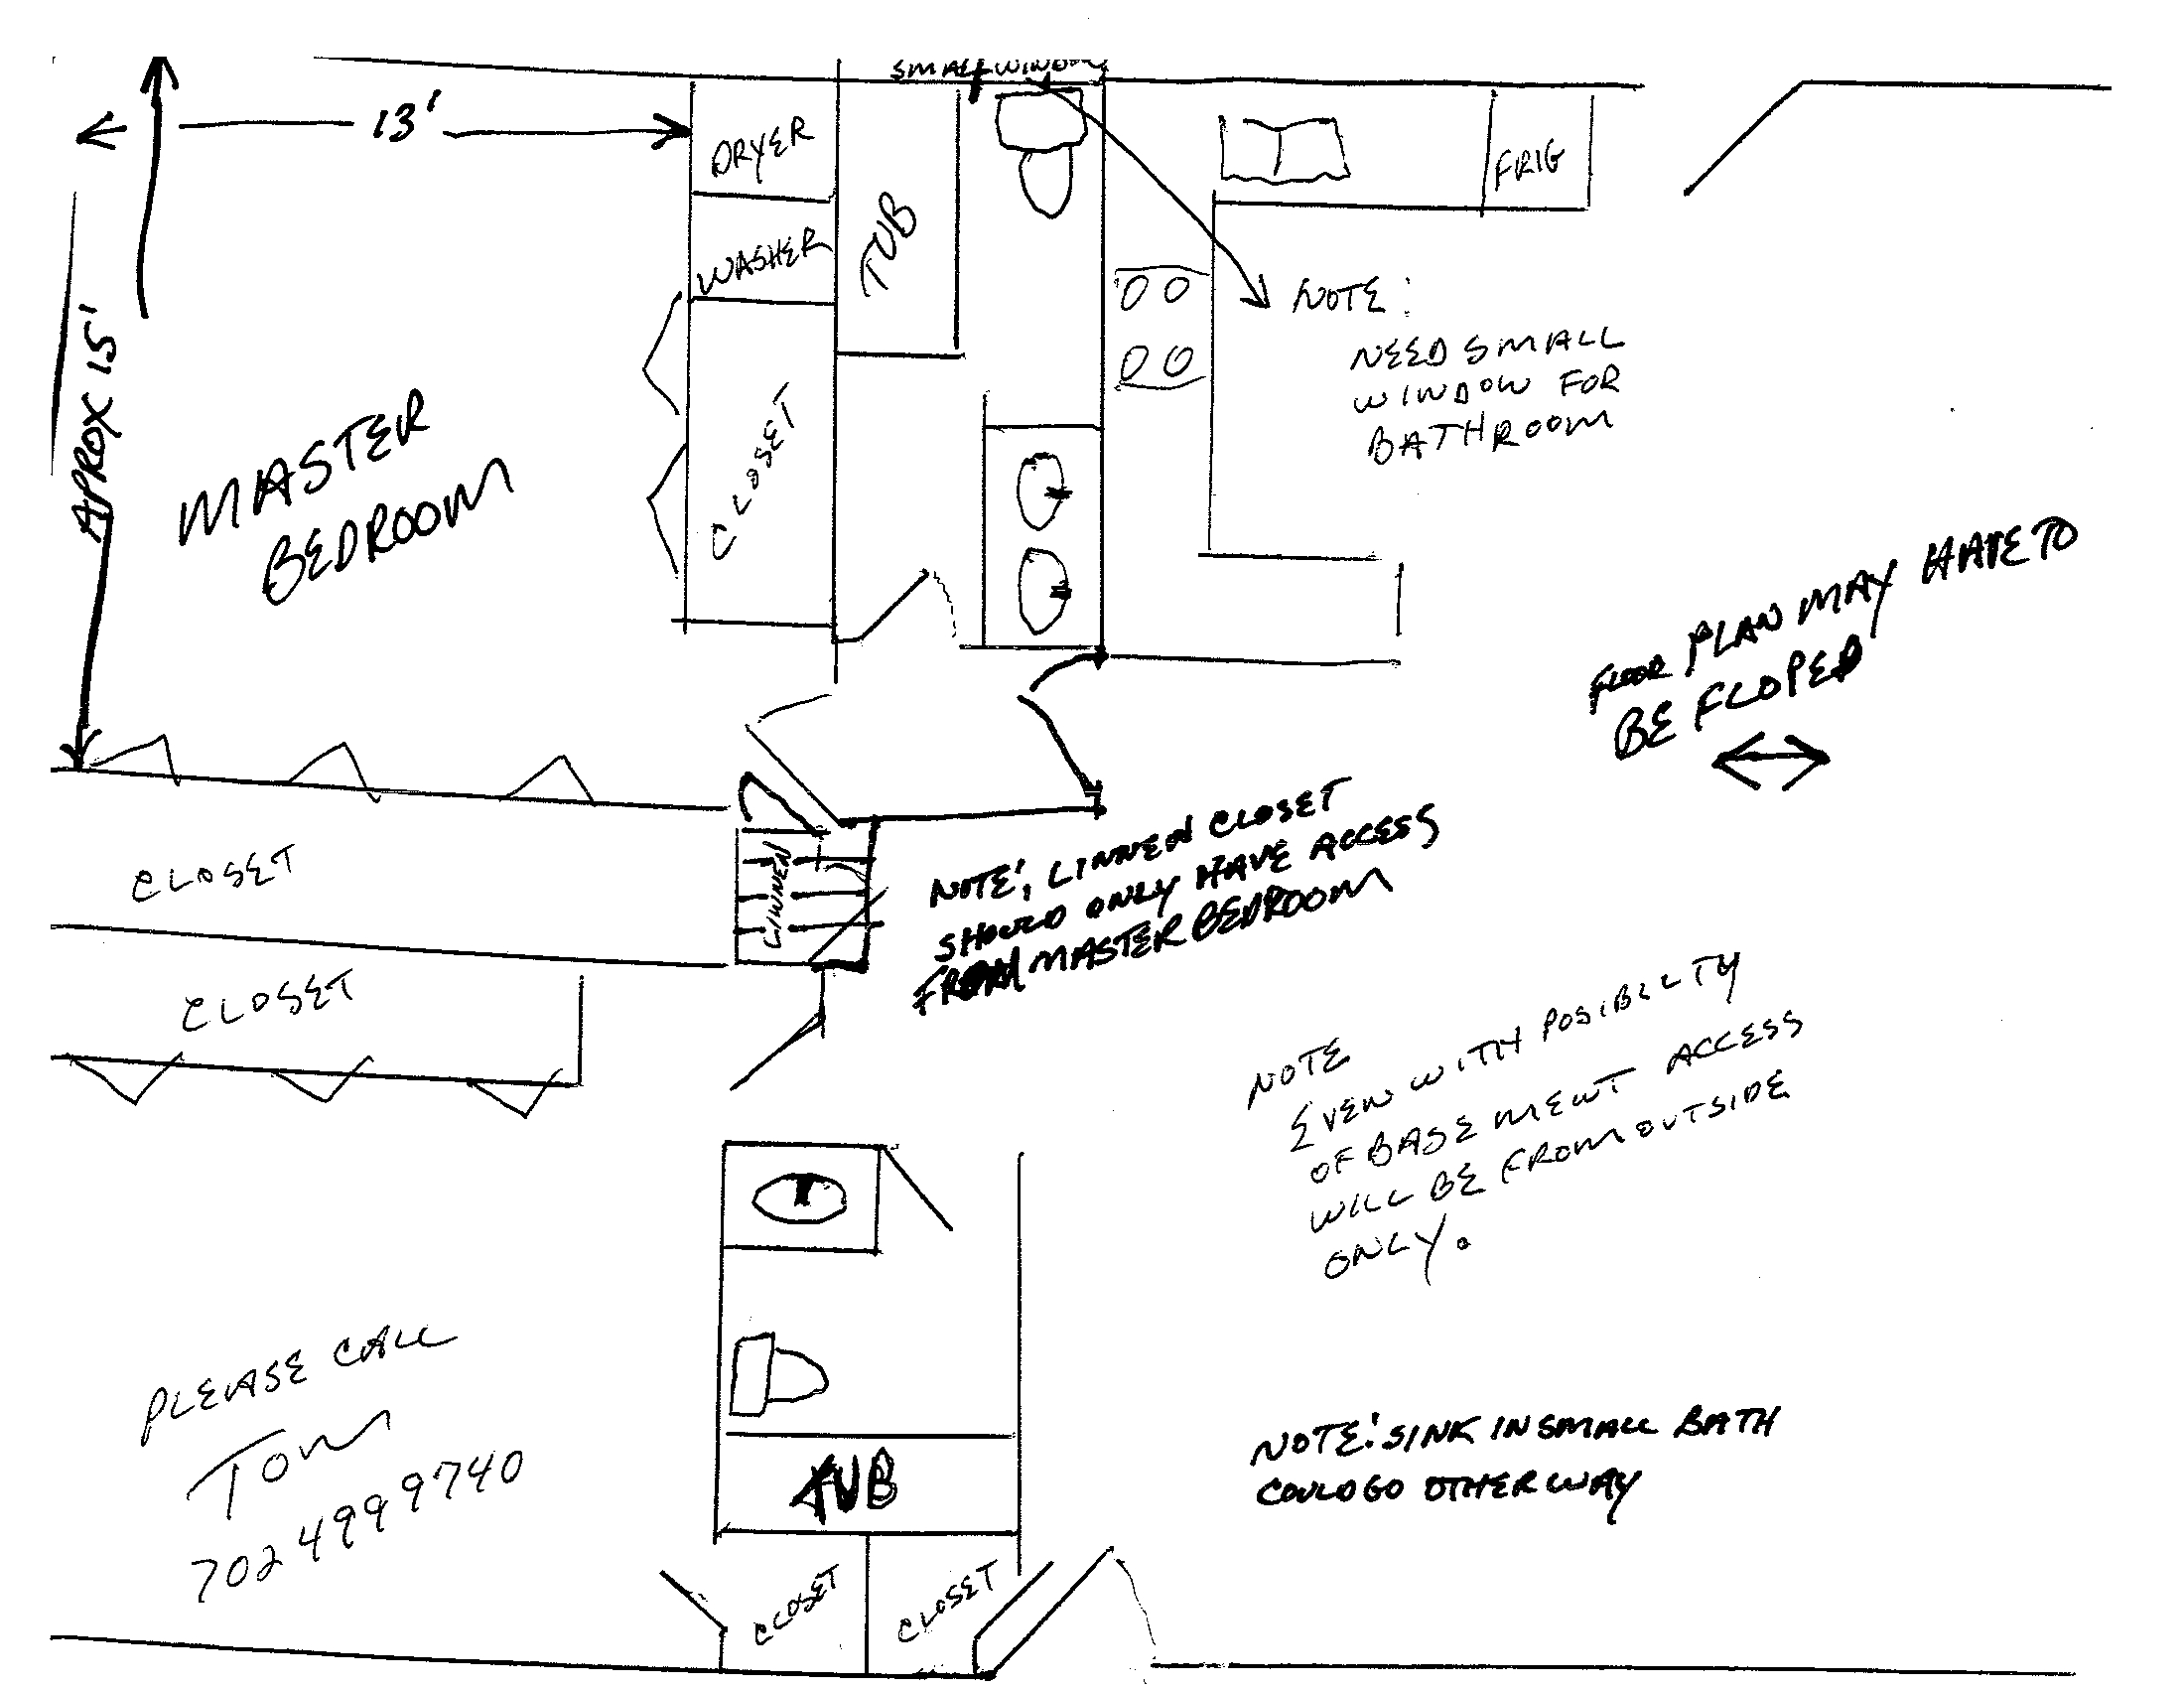 SMALL WINDOW
13'
DRYER
WASHER
TUB
FRIG
APROX 15'
MASTER
BEDROOM
CLOSET
NOTE:
NEED SMALL
WINDOW FOR
BATHROOM
FLOOR PLAN MAY HAVE TO
BE FLOPED
CLOSET
LINNEN
NOTE: LINNEN CLOSET
SHOULD ONLY HAVE ACCESS
FROM MASTER BEDROOM
CLOSET
NOTE
EVEN WITH POSIBILTY
OF BASEMENT ACCESS
WILL BE FROM OUTSIDE
ONLY.
PLEASE CALL
TOM
702 499 9740
TUB
NOTE: SINK IN SMALL BATH
COULD GO OTHER WAY
CLOSET
CLOSET